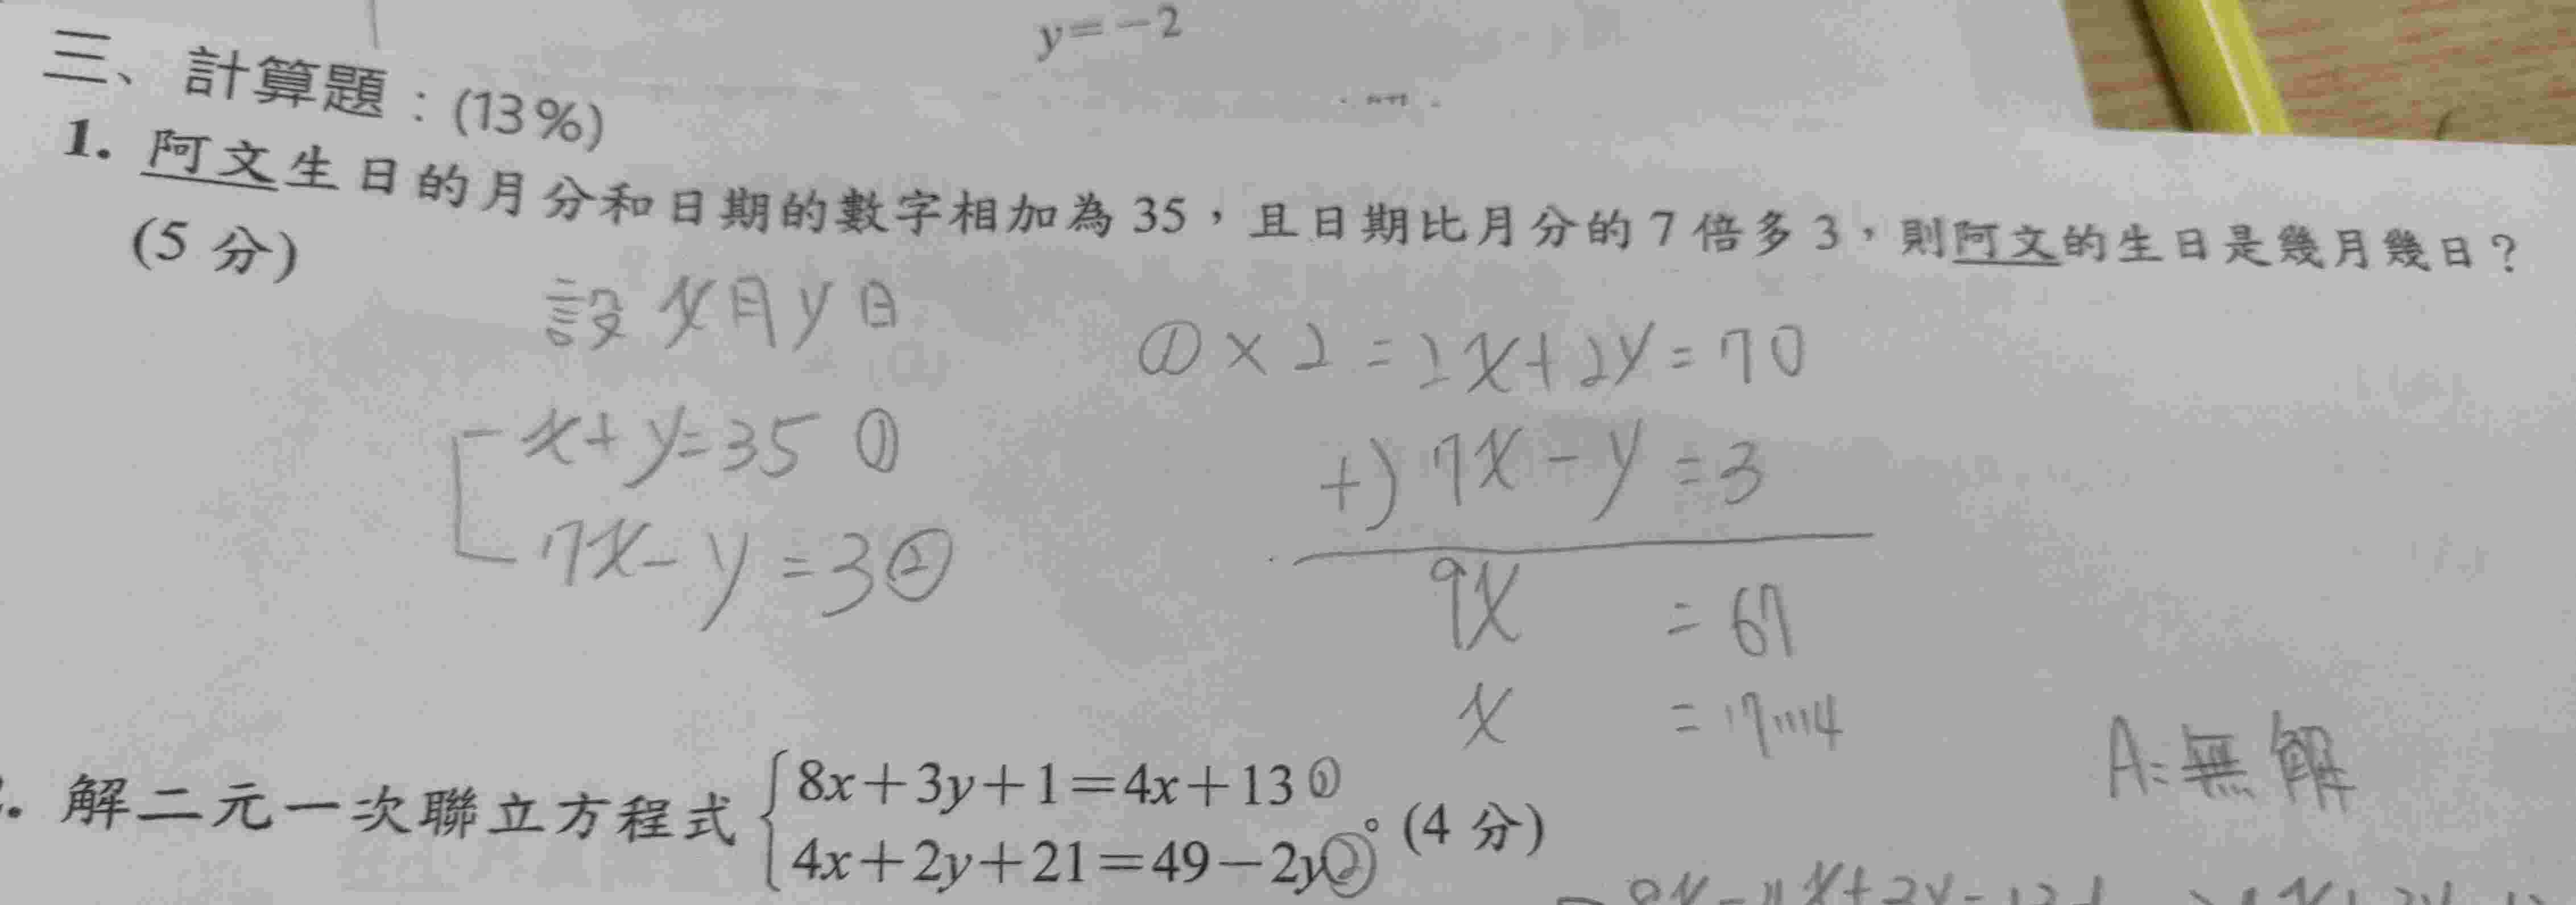 y=-2
三、計算題：(13%)
1. 阿文生日的月分和日期的數字相加為 35，且日期比月分的 7 倍多 3，則阿文的生日是幾月幾日？
(5 分)
設 x月y日
x+y=35 ①
7x-y=3②
①×2=2x+2y=70
+)7x-y=3
9x =67
x =17…4
A:無解
. 解二元一次聯立方程式 8x+3y+1=4x+13①
4x+2y+21=49-2y②。(4 分)